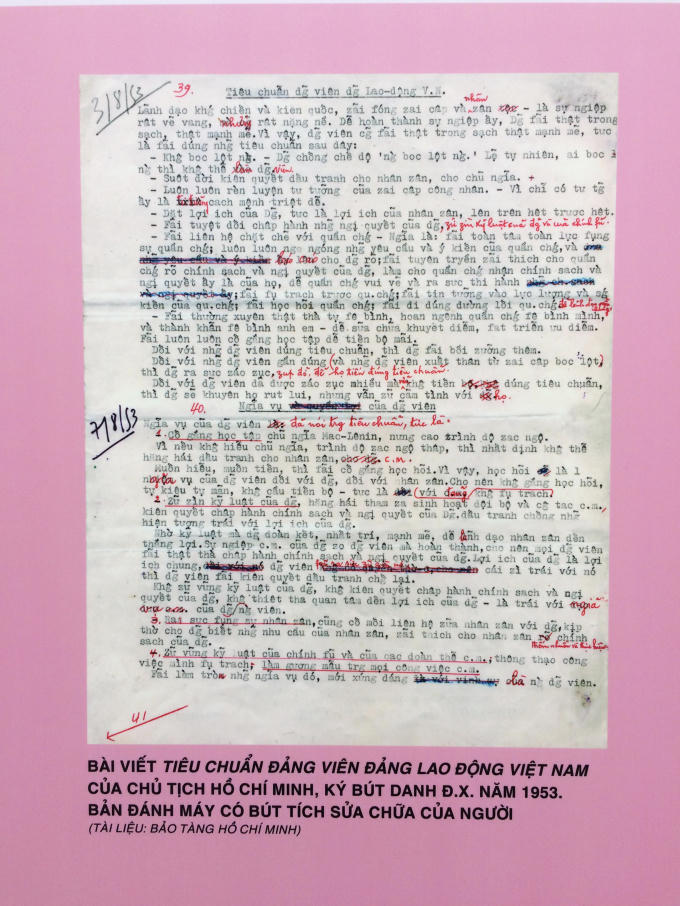 3/8/53
39.
Tiêu chuẩn dg̃ viên dg̃ Lao-dộng V.N.
Lãnh dạo khg̃ chiến và kiến quốc, zải fóng zai cấp và zân nhân - là sự ngiệp
rất vẻ vang, rất nặng nề. Dể hoàn thành sự ngiệp ấy, Dg̃ fải thật trong
sạch, thật mạnh mẽ. Vì vậy, dg̃ viên cg̃ fải thật trong sạch thật mạnh mẽ, tức
là fải dúng nhg̃ tiêu chuẩn sau dây:
- Khg̃ bóc lột ng̃. - Dg̃ chống chế dộ 'ng̃ bóc lột ng̃.' Lẽ tự nhiên, ai bóc l
ng̃ thì khg̃ thể là dg̃ viên.
- Suốt dời kiên quyết dấu tranh cho nhân zân, cho chủ ngĩa.
- Luôn luôn rèn luyện tư tưởng của zai cấp công nhân. - Vì chỉ có tư tg̃
ấy là cách mệnh triệt dể.
- Dặt lợi ích của Dg̃, tức là lợi ích của nhân zân, lên trên hết trước hết.
- Fải tuyệt dối chấp hành nhg̃ ngị quyết của dg̃, zữ zìn kỷ luật của dg̃ và của chính fủ.
- Fải liên hệ chặt chẽ với quần chg̃ - Ngĩa là: fải toàn tâm toàn lực fụng
sự quần chg̃; luôn luôn nge ngóng nhg̃ yêu cầu và ý kiến của quần chg̃, và
nhg̃ yêu cầu và ý kiến báo cáo cho dg̃ rõ; fải tuyên truyền zải thích cho quần
chg̃ rõ chính sách và ngị quyết của dg̃, làm cho quần chg̃ nhận chính sách và
ngị quyết ấy là của họ, dể quần chg̃ vui vẻ và ra sức thi hành
và ngị quyết ấy; fải fụ trách trước qu.chg̃; fải tin tưởng vào lực lượng và sg̃
kiến của qu.chg̃; fải học hỏi quần chg̃; fải di dúng dường lối qu.chg̃
- Fải thường xuyên thật thà tự fê bình, hoan ngênh quần chg̃ fê bình mình,
và thành khẩn fê bình anh em - dể sửa chữa khuyết diểm, fát triển ưu diểm.
Fải luôn luôn cố gắng học tập dể tiến bộ mãi.
Dối với nhg̃ dg̃ viên dúng tiêu chuẩn, thì dg̃ fải bồi zưỡng thêm.
Dối với nhg̃ dg̃ viên gần dúng (và nhg̃ dg̃ viên xuất thân từ zai cấp bóc lột,)
thì dg̃ ra sức záo zục, zúp dỡ, dể họ tiến dúng tiêu chuẩn.
Dối với dg̃ viên dã dược záo zục nhiều mà vẫn khg̃ tiến dúng tiêu chuẩn,
thì dg̃ sẽ khuyên họ rút lui, nhưng vẫn zữ cảm tình với họ.
7/8/53
40.
Ngĩa vụ và quyền lợi của dg̃ viên
Ngĩa vụ của dg̃ viên dã nói trg tiêu chuẩn, tức là:
1. Cố gắng học tập chủ ngĩa Mac-Lênin, nưng cao trình dộ zác ngộ.
Vì nếu khg̃ hiểu chủ ngĩa, trình dộ zác ngộ thấp, thì nhất dịnh khg̃ thể
hăng hái dấu tranh cho nhân zân, cho c.m.
Muốn hiểu, muốn tiến, thì fải cố gắng học hỏi. Vì vậy, học hỏi là 1
ngĩa vụ của dg̃ viên dối với dg̃, dối với nhân zân. Cho nên khg̃ gắng học hỏi,
tự kiêu tự mãn, khg̃ cầu tiến bộ - tức là (với dảng) khg̃ fụ trách
2. Zữ zìn kỷ luật của dg̃, hăng hái tham za sinh hoạt dội bộ và cg̃ tác c.m.,
kiên quyết chấp hành chính sách và ngị quyết của Dg̃. dấu tranh chống nhg̃
hiện tượng trái với lợi ích của dg̃.
Nhờ kỷ luật mà dg̃ doàn kết, nhất trí, mạnh mẽ, dể lãnh dạo nhân zân dến
thắng lợi. Sự ngiệp c.m. của dg̃ zo dg̃ viên mà hoàn thành, cho nên mọi dg̃ viên
fải thật thà chấp hành chính sách và ngị quyết của dg̃. Lợi ích của dg̃ là lợi
ích chung, dg̃ viên cái zì trái với nó
thì dg̃ viên fải kiên quyết dấu tranh chg̃ lại.
Khg̃ zữ vững kỷ luật của dg̃, khg̃ kiên quyết chấp hành chính sách và ngị
quyết của dg̃, khg̃ thiết tha quan tâm dến lợi ích của dg̃ - là trái với ngĩa
của dg̃ viên.
3. Ran sức fụng sự nhân zân, củng cố mối liên hệ zữa nhân zân với dg̃, kịp
thờ cho dg̃ biết nhg̃ nhu cầu của nhân zân, zải thích cho nhân zân rõ chính
sách của dg̃.
4. Zữ vững kỷ luật của chính fủ và của các doàn thể c.m.; thông thạo công
việc mình fụ trách; làm gương mẫu trg mọi công việc c.m.
Fải làm tròn nhg̃ ngĩa vụ dó, mới xứng dáng là ng̃ dg̃ viên.
41
BÀI VIẾT TIÊU CHUẨN ĐẢNG VIÊN ĐẢNG LAO ĐỘNG VIỆT NAM
CỦA CHỦ TỊCH HỒ CHÍ MINH, KÝ BÚT DANH Đ.X. NĂM 1953.
BẢN ĐÁNH MÁY CÓ BÚT TÍCH SỬA CHỮA CỦA NGƯỜI
(TÀI LIỆU: BẢO TÀNG HỒ CHÍ MINH)